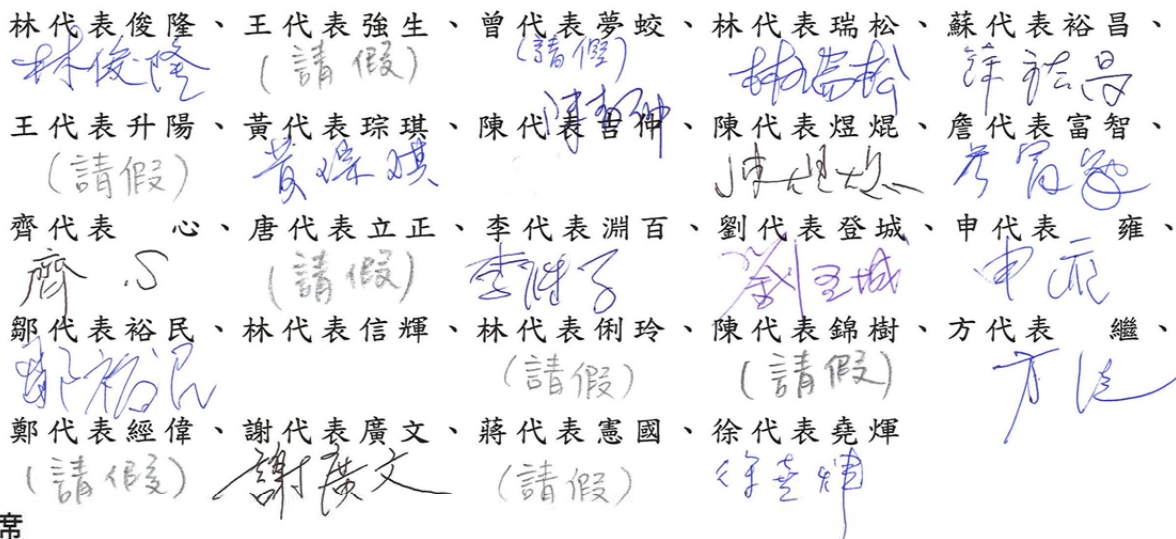 林代表俊隆、王代表強生、曾代表夢蛟、林代表瑞松、蘇代表裕昌、
林俊隆 (請假) (請假) 林瑞松
王代表升陽、黃代表琮琪、陳代表哲仲、陳代表煜焜、詹代表富智、
(請假) 黃琮琪
齊代表 心、唐代表立正、李代表淵百、劉代表登城、申代表 雍、
齊心 (請假) 劉登城 申雍
鄒代表裕民、林代表信輝、林代表俐玲、陳代表錦樹、方代表 繼、
鄒裕民 (請假) (請假) 方繼
鄭代表經偉、謝代表廣文、蔣代表憲國、徐代表堯煇
(請假) 謝廣文 (請假) 徐堯煇
席